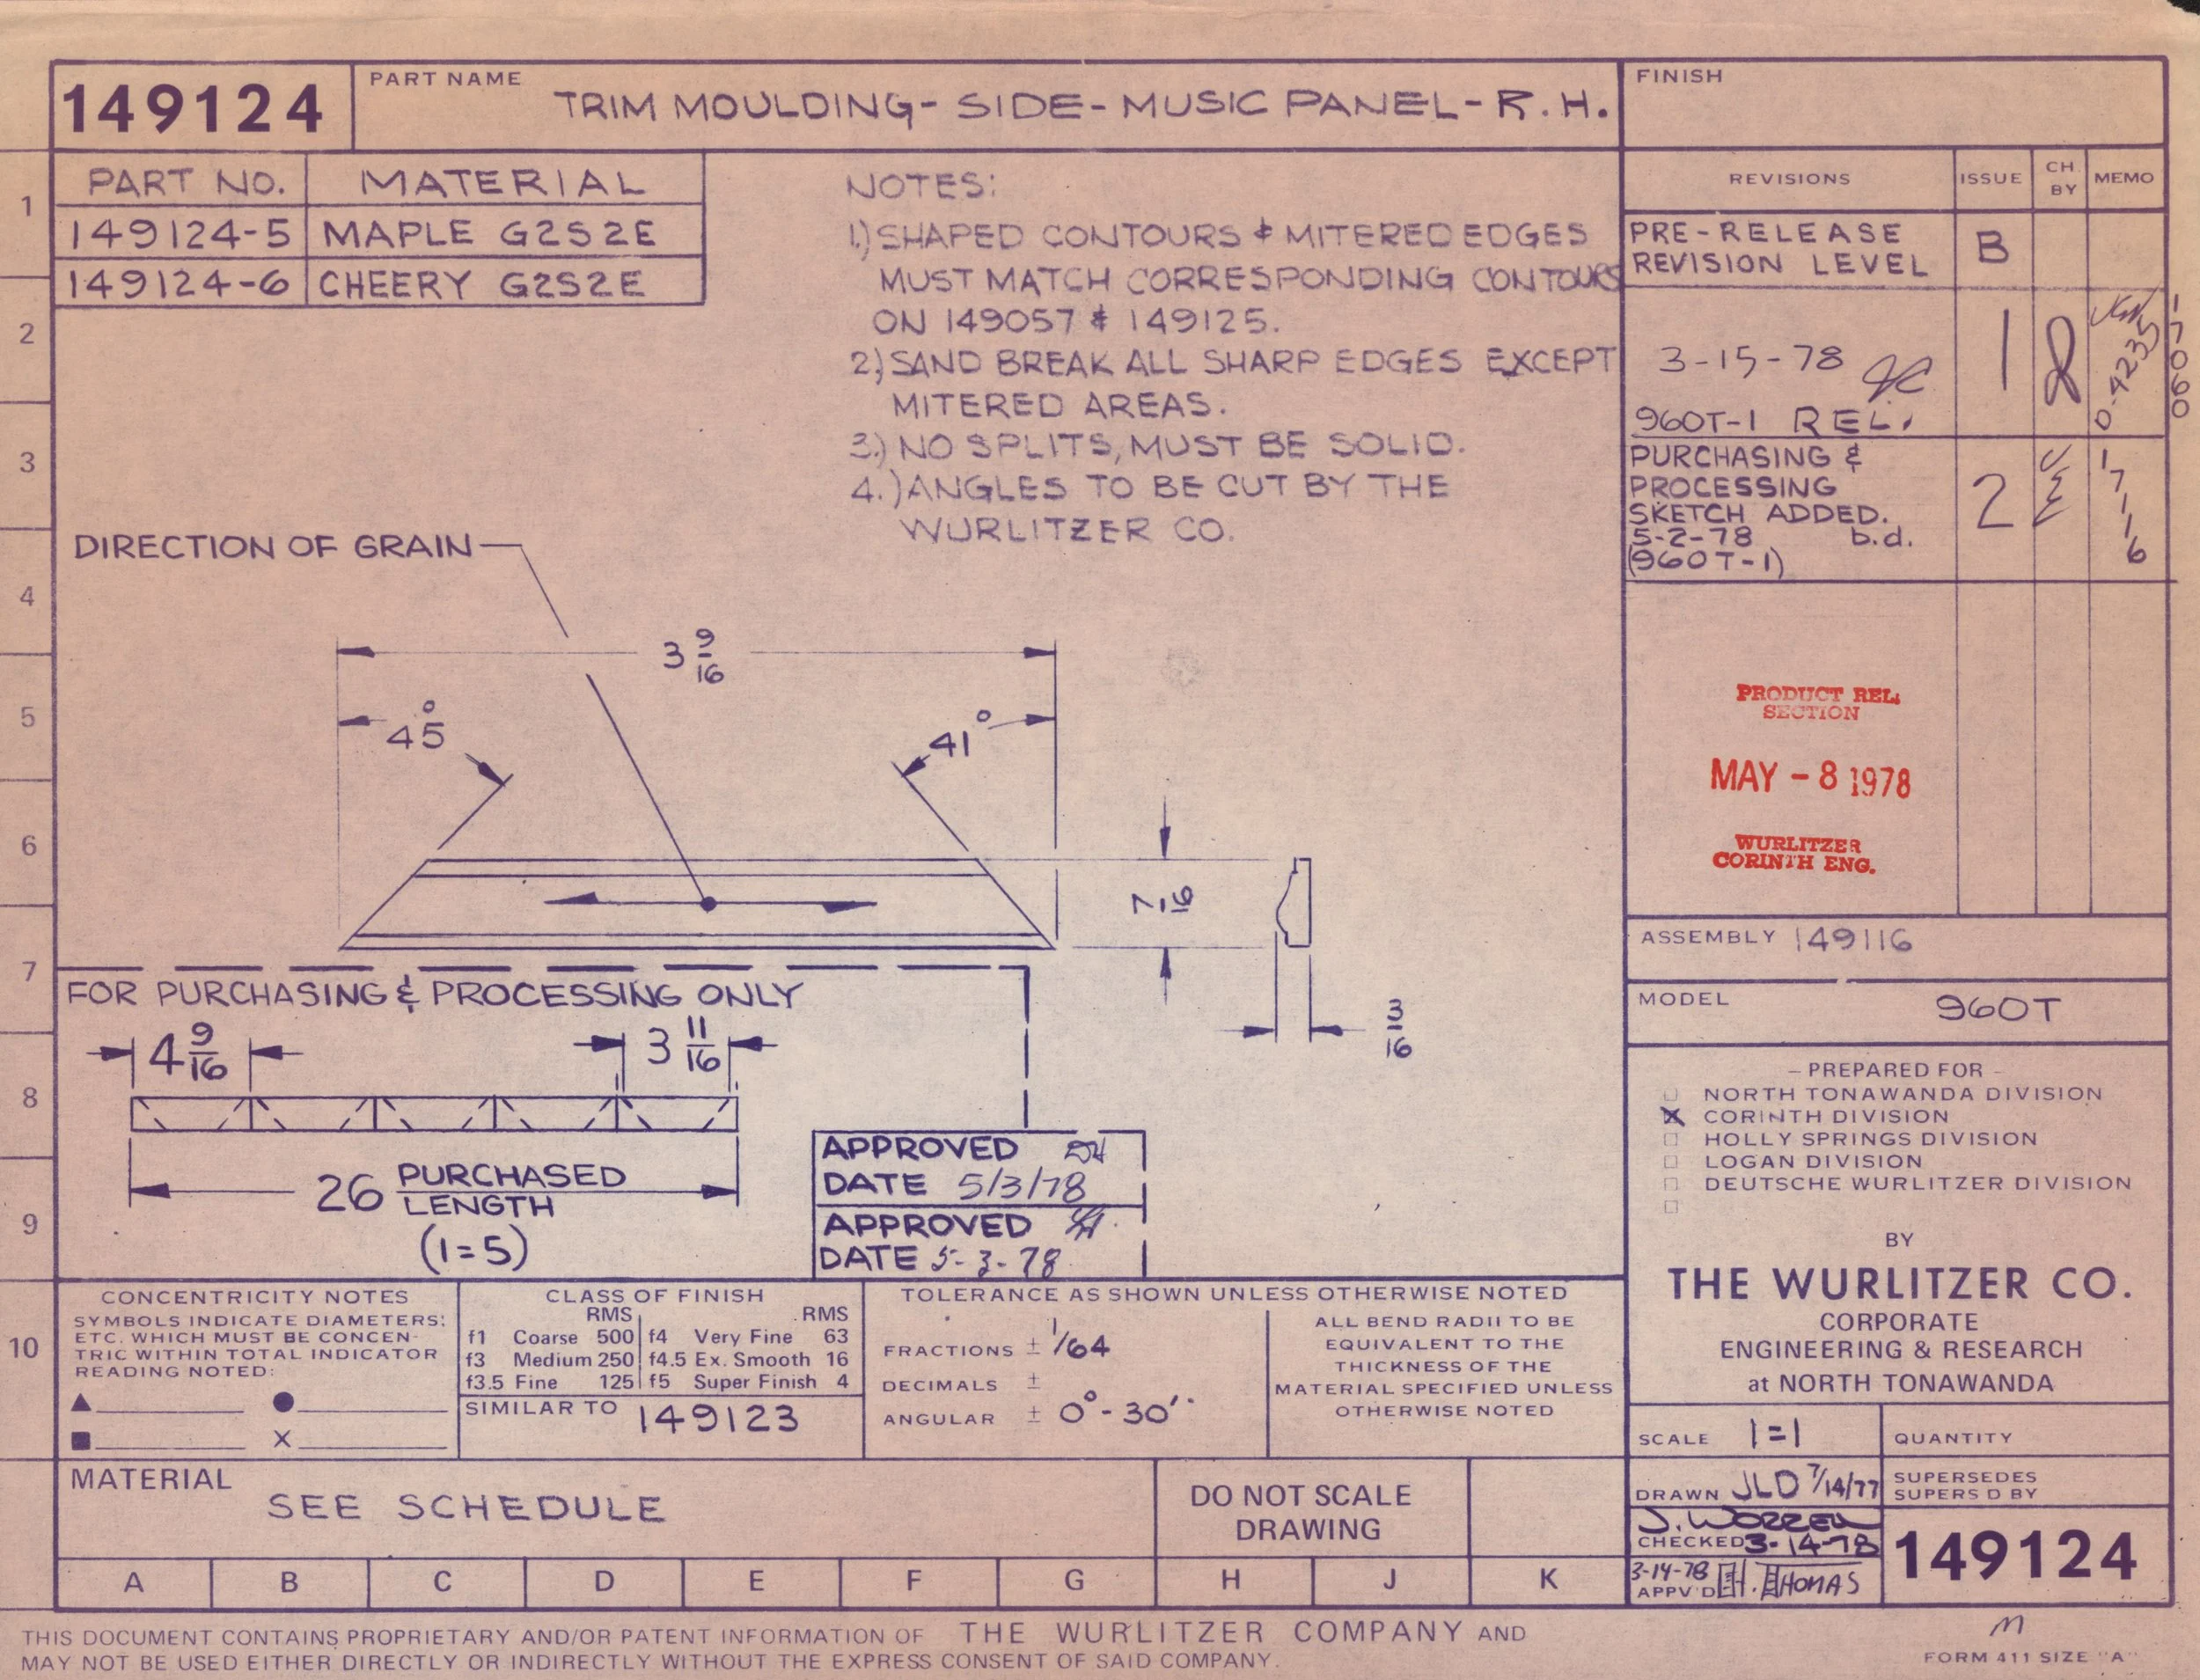 149124
PART NAME
TRIM MOULDING- SIDE- MUSIC PANEL- R.H.
FINISH
PART NO. MATERIAL
149124-5 MAPLE G2S2E
149124-6 CHEERY G2S2E
NOTES:
1.) SHAPED CONTOURS & MITERED EDGES
MUST MATCH CORRESPONDING CONTOURS
ON 149057 & 149125.
2.) SAND BREAK ALL SHARP EDGES EXCEPT
MITERED AREAS.
3.) NO SPLITS, MUST BE SOLID.
4.) ANGLES TO BE CUT BY THE
WURLITZER CO.
REVISIONS ISSUE CH BY MEMO
PRE-RELEASE
REVISION LEVEL B
3-15-78
960T-1 REL. 1
0-4235
17060
PURCHASING &
PROCESSING
SKETCH ADDED.
5-2-78 b.d.
(960T-1)
2
17116
1
2
3
4
5
6
7
8
9
10
DIRECTION OF GRAIN
3 9/16
45°
41°
7/16
3/16
PRODUCT REL.
SECTION
MAY - 8 1978
WURLITZER
CORINTH ENG.
FOR PURCHASING & PROCESSING ONLY
4 9/16
3 11/16
26 PURCHASED
LENGTH
(1=5)
APPROVED
DATE 5/3/78
APPROVED
DATE 5-3-78
ASSEMBLY 149116
MODEL 960T
- PREPARED FOR -
NORTH TONAWANDA DIVISION
X CORINTH DIVISION
HOLLY SPRINGS DIVISION
LOGAN DIVISION
DEUTSCHE WURLITZER DIVISION
BY
THE WURLITZER CO.
CORPORATE
ENGINEERING & RESEARCH
at NORTH TONAWANDA
CONCENTRICITY NOTES
SYMBOLS INDICATE DIAMETERS:
ETC. WHICH MUST BE CONCEN-
TRIC WITHIN TOTAL INDICATOR
READING NOTED:
▲ ●
■ X
CLASS OF FINISH
RMS RMS
f1 Coarse 500 f4 Very Fine 63
f3 Medium 250 f4.5 Ex. Smooth 16
f3.5 Fine 125 f5 Super Finish 4
SIMILAR TO 149123
TOLERANCE AS SHOWN UNLESS OTHERWISE NOTED
FRACTIONS ± 1/64
DECIMALS ±
ANGULAR ± 0°-30'
ALL BEND RADII TO BE
EQUIVALENT TO THE
THICKNESS OF THE
MATERIAL SPECIFIED UNLESS
OTHERWISE NOTED
SCALE 1=1
QUANTITY
MATERIAL
SEE SCHEDULE
DO NOT SCALE
DRAWING
DRAWN JLD 7/14/77
SUPERSEDES
SUPERS'D BY
J. WORREN
CHECKED 3-14-78
3-14-78
APPV'D H. THOMAS
149124
A B C D E F G H J K
THIS DOCUMENT CONTAINS PROPRIETARY AND/OR PATENT INFORMATION OF THE WURLITZER COMPANY AND
MAY NOT BE USED EITHER DIRECTLY OR INDIRECTLY WITHOUT THE EXPRESS CONSENT OF SAID COMPANY.
M
FORM 411 SIZE "A"